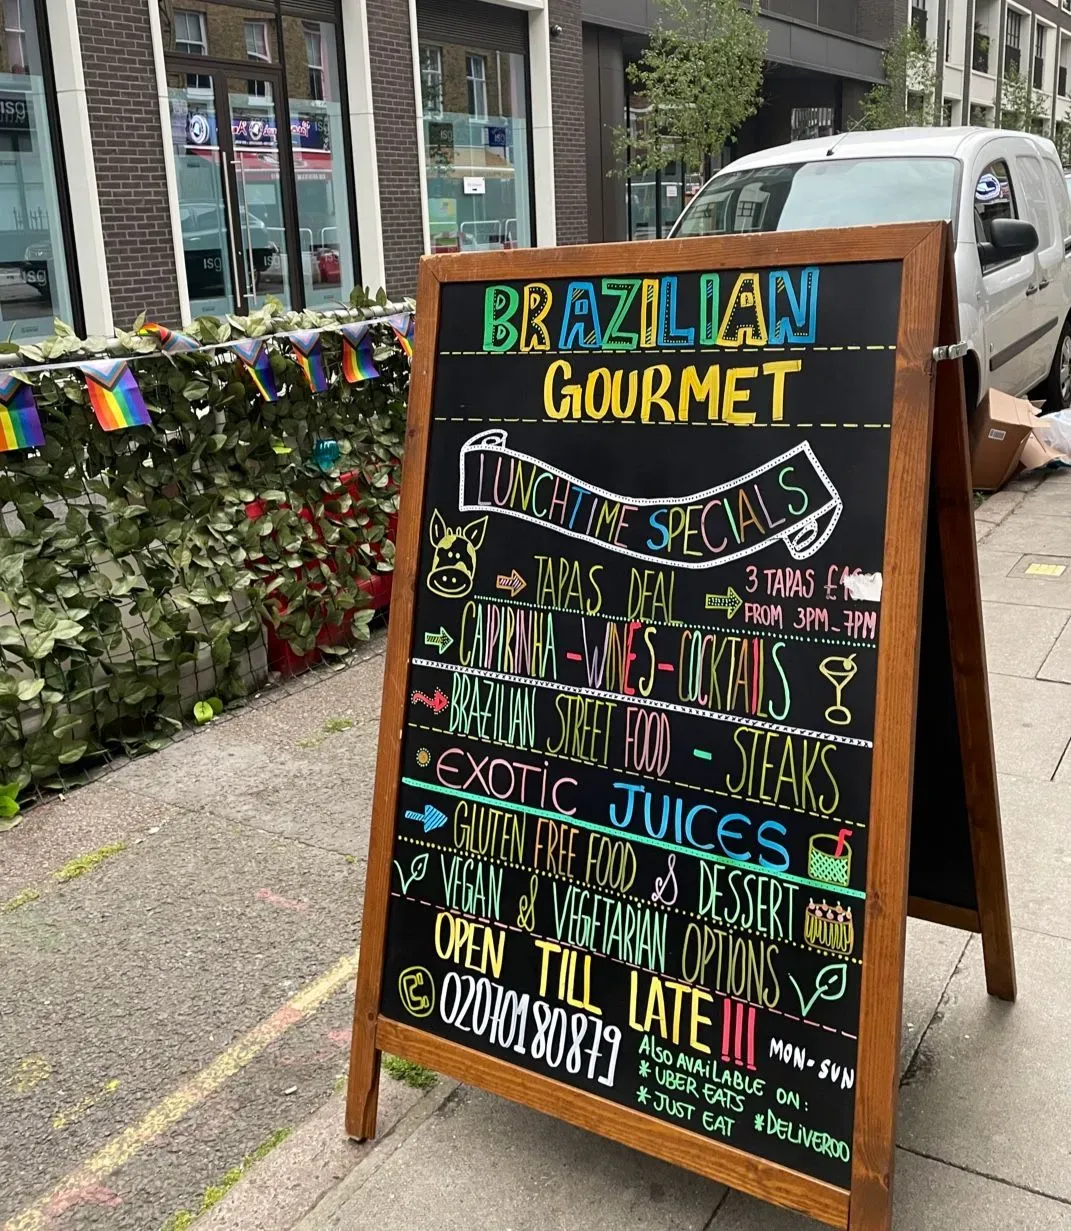 BRAZILIAN
GOURMET
LUNCHTIME SPECIALS
TAPAS DEAL
3 TAPAS
FROM 3PM-7PM
CAIPIRINHA - WINES - COCKTAILS
BRAZILIAN STREET FOOD - STEAKS
EXOTIC JUICES
GLUTEN FREE FOOD & DESSERT
VEGAN & VEGETARIAN OPTIONS
OPEN TILL LATE!!!
02070180879
MON-SUN
ALSO AVAILABLE ON:
* UBER EATS
* JUST EAT * DELIVEROO
isg
isg
isg